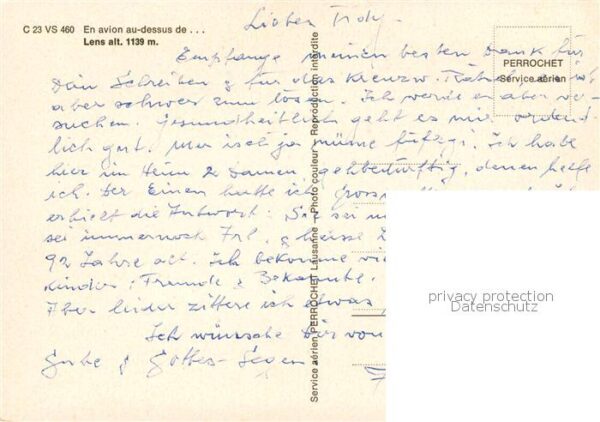 C 23 VS 460 En avion au-dessus de . . .
Lens alt. 1139 m.
PERROCHET
Service aérien
Service aérien PERROCHET Lausanne - Photo couleur - Reproduction interdite
Lieber
Empfange meinen besten Dank für
Dein Schreiben & für das Kreuzw.
aber schwer zum lösen. Ich werde es aber ver-
suchen. Gesundheitlich geht es mir ordent-
lich gut. Ich habe
hier im Heim 2 Damen, gehbedürftig, denen helfe
ich. Der Einen hatte ich
erhielt die Antwort: Sie sei
sei immernoch Frl. & heisse
92 Jahre alt. Ich bekomme
kinder, Freunde & Bekannte.
Aber leider zittere ich etwas
Ich wünsche Dir von
Gute & Gottes-Segen
privacy protection
Datenschutz